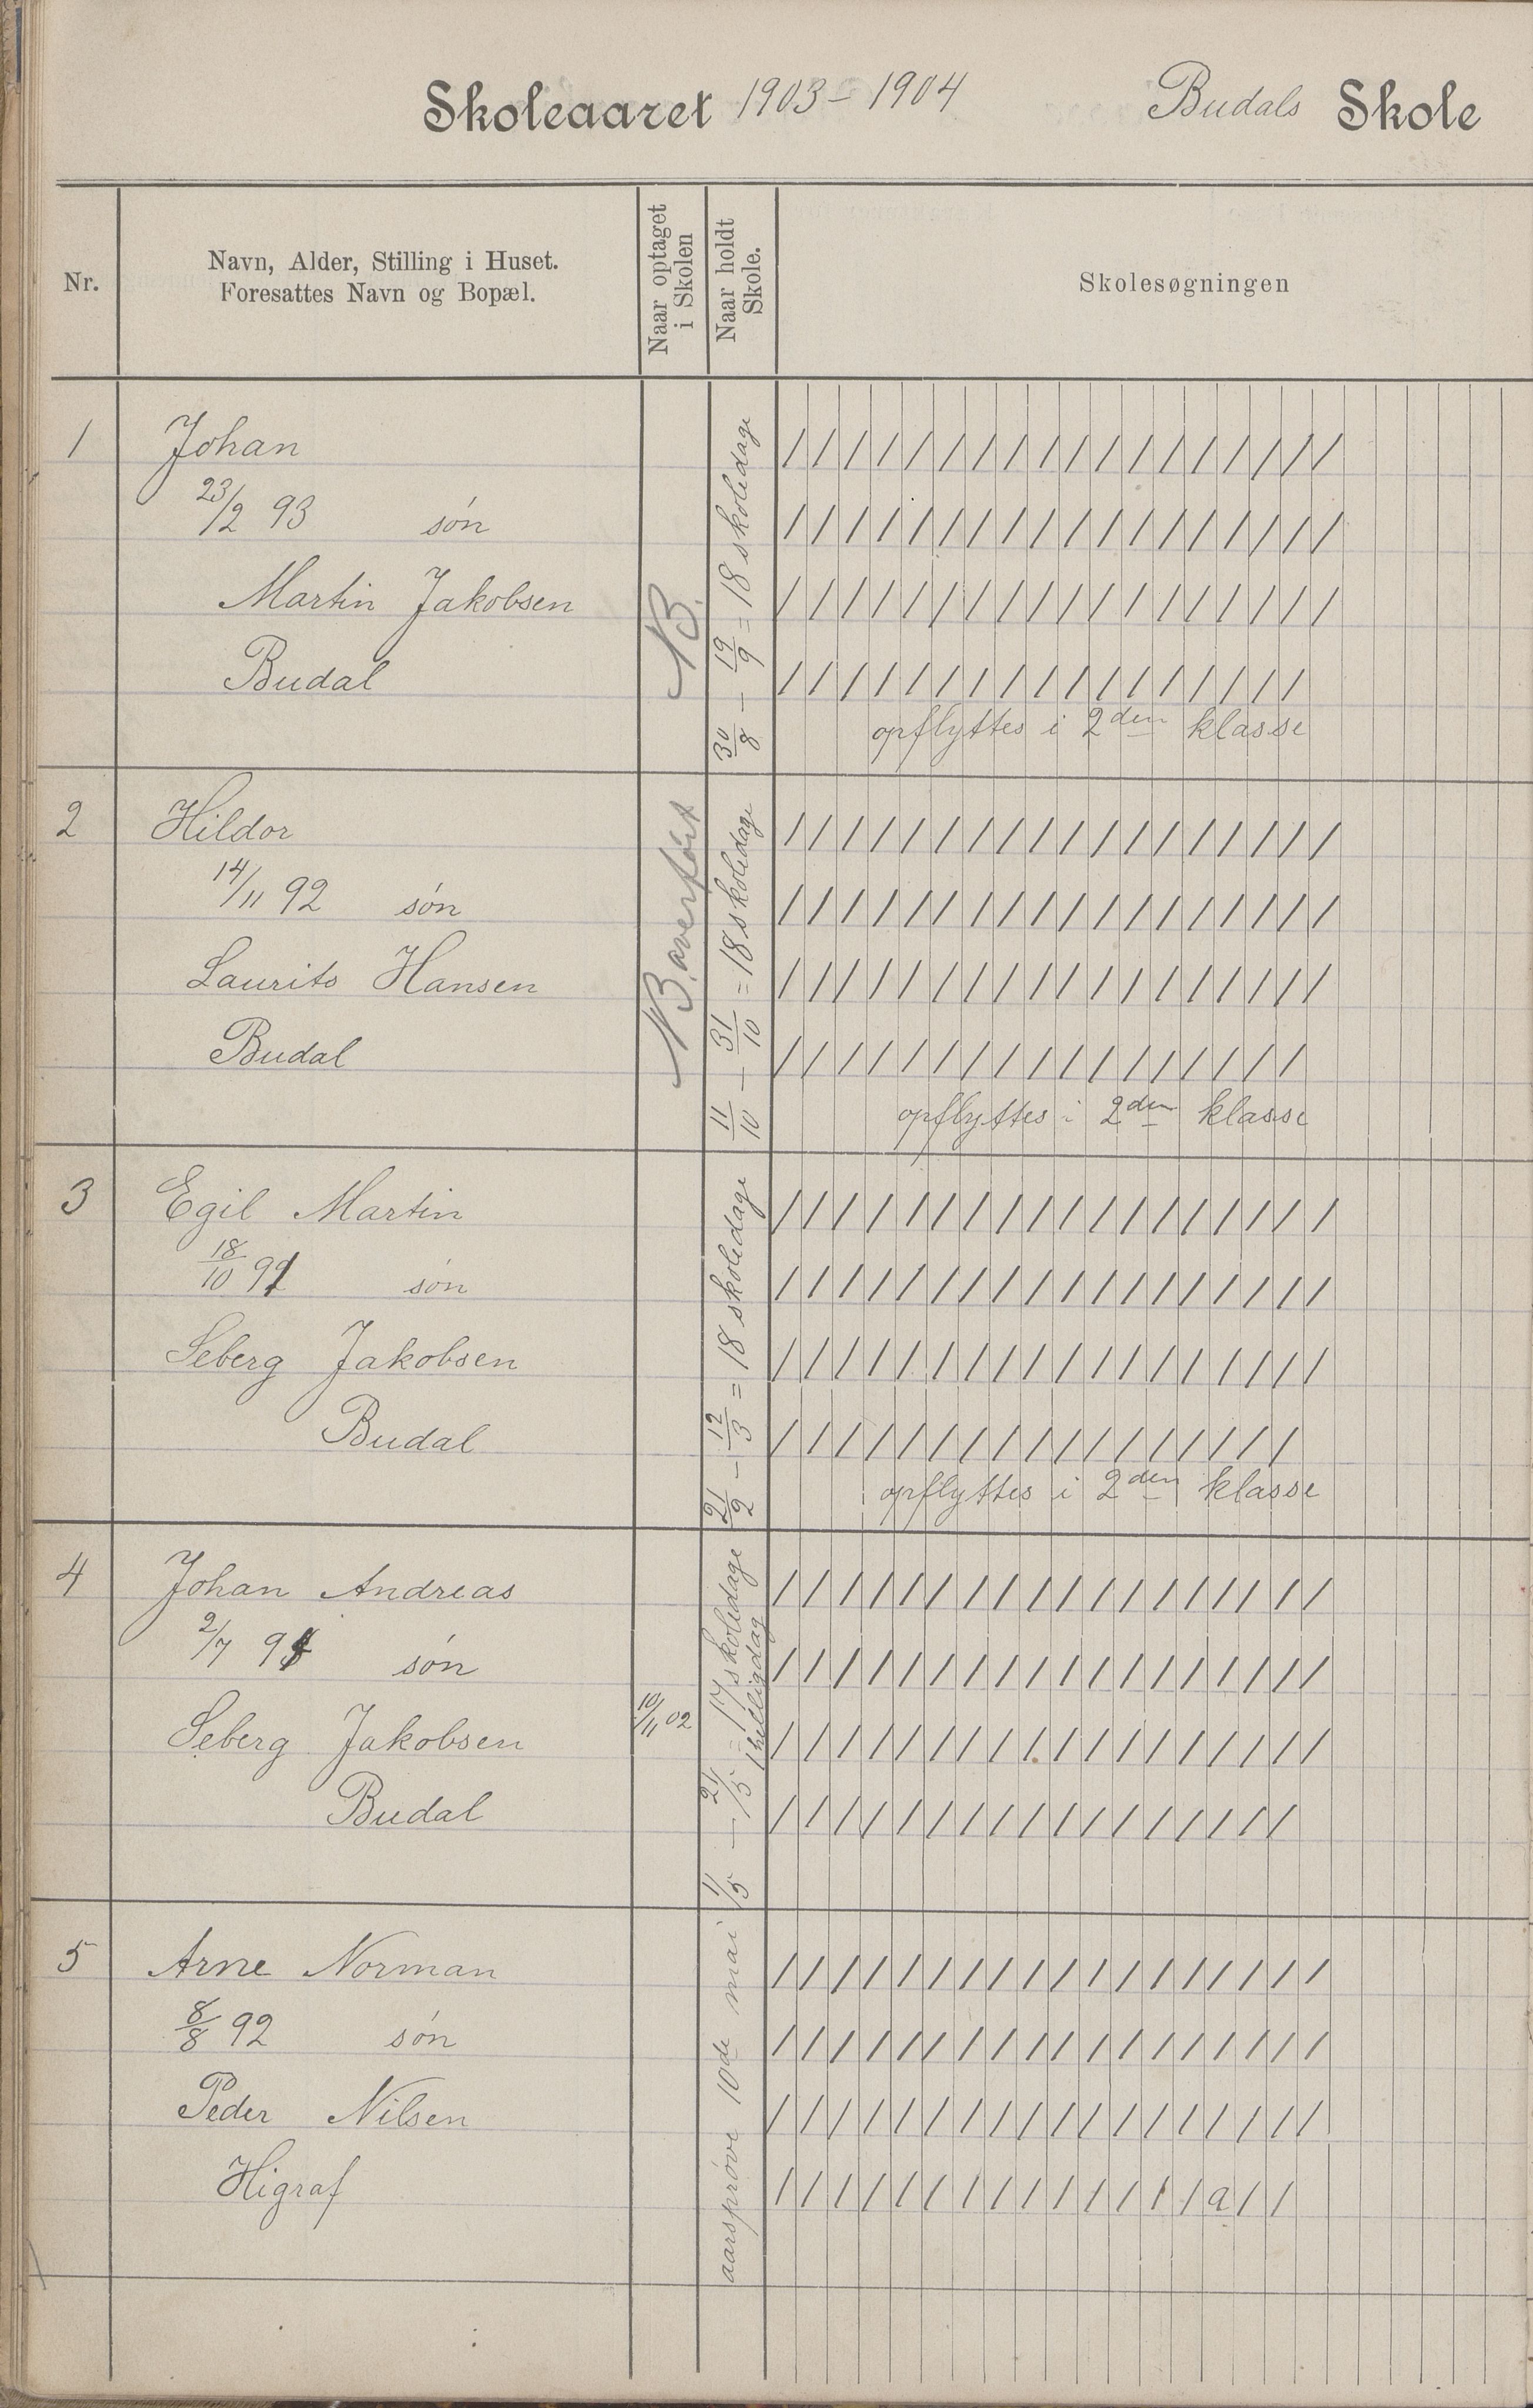 Skoleaaret 1903-1904 Budals Skole
Nr.
Navn, Alder, Stilling i Huset.
Foresattes Navn og Bopæl.
Naar optaget
i Skolen
Naar holdt
Skole.
Skolesøgningen
1
Johan
23/2 93 søn
Martin Jakobsen
Budal
NB.
30/8 - 19/9 = 18 skoledage
/ / / / / / / / / / / / / / / / / /
/ / / / / / / / / / / / / / / / / /
/ / / / / / / / / / / / / / / / / /
/ / / / / / / / / / / / / / / / /
opflyttes i 2den klasse
2
Hildor
14/11 92 søn
Laurits Hansen
Budal
NB. overført
11/10 - 31/10 = 18 skoledage
/ / / / / / / / / / / / / / / / / /
/ / / / / / / / / / / / / / / / / /
/ / / / / / / / / / / / / / / / / /
/ / / / / / / / / / / / / / / / /
opflyttes i 2den klasse
3
Egil Martin
18/10 91 søn
Seberg Jakobsen
Budal
21/2 - 12/3 = 18 skoledage
/ / / / / / / / / / / / / / / / / /
/ / / / / / / / / / / / / / / / / /
/ / / / / / / / / / / / / / / / / /
/ / / / / / / / / / / / / / / / /
opflyttes i 2den klasse
4
Johan Andreas
2/7 søn
Seberg Jakobsen
Budal
10/11 02
1/5 - 21/5 = 17 skoledage
1 helligdag
/ / / / / / / / / / / / / / / / / /
/ / / / / / / / / / / / / / / / / /
/ / / / / / / / / / / / / / / / / /
/ / / / / / / / / / / / / / / / /
5
Arne Norman
8/8 92 søn
Peder Nilsen
Higraf
aarsprøve 10de mai
/ / / / / / / / / / / / / / / / / /
/ / / / / / / / / / / / / / / / / /
/ / / / / / / / / / / / / / / / / /
/ / / / / / / / / / / / / / a / /